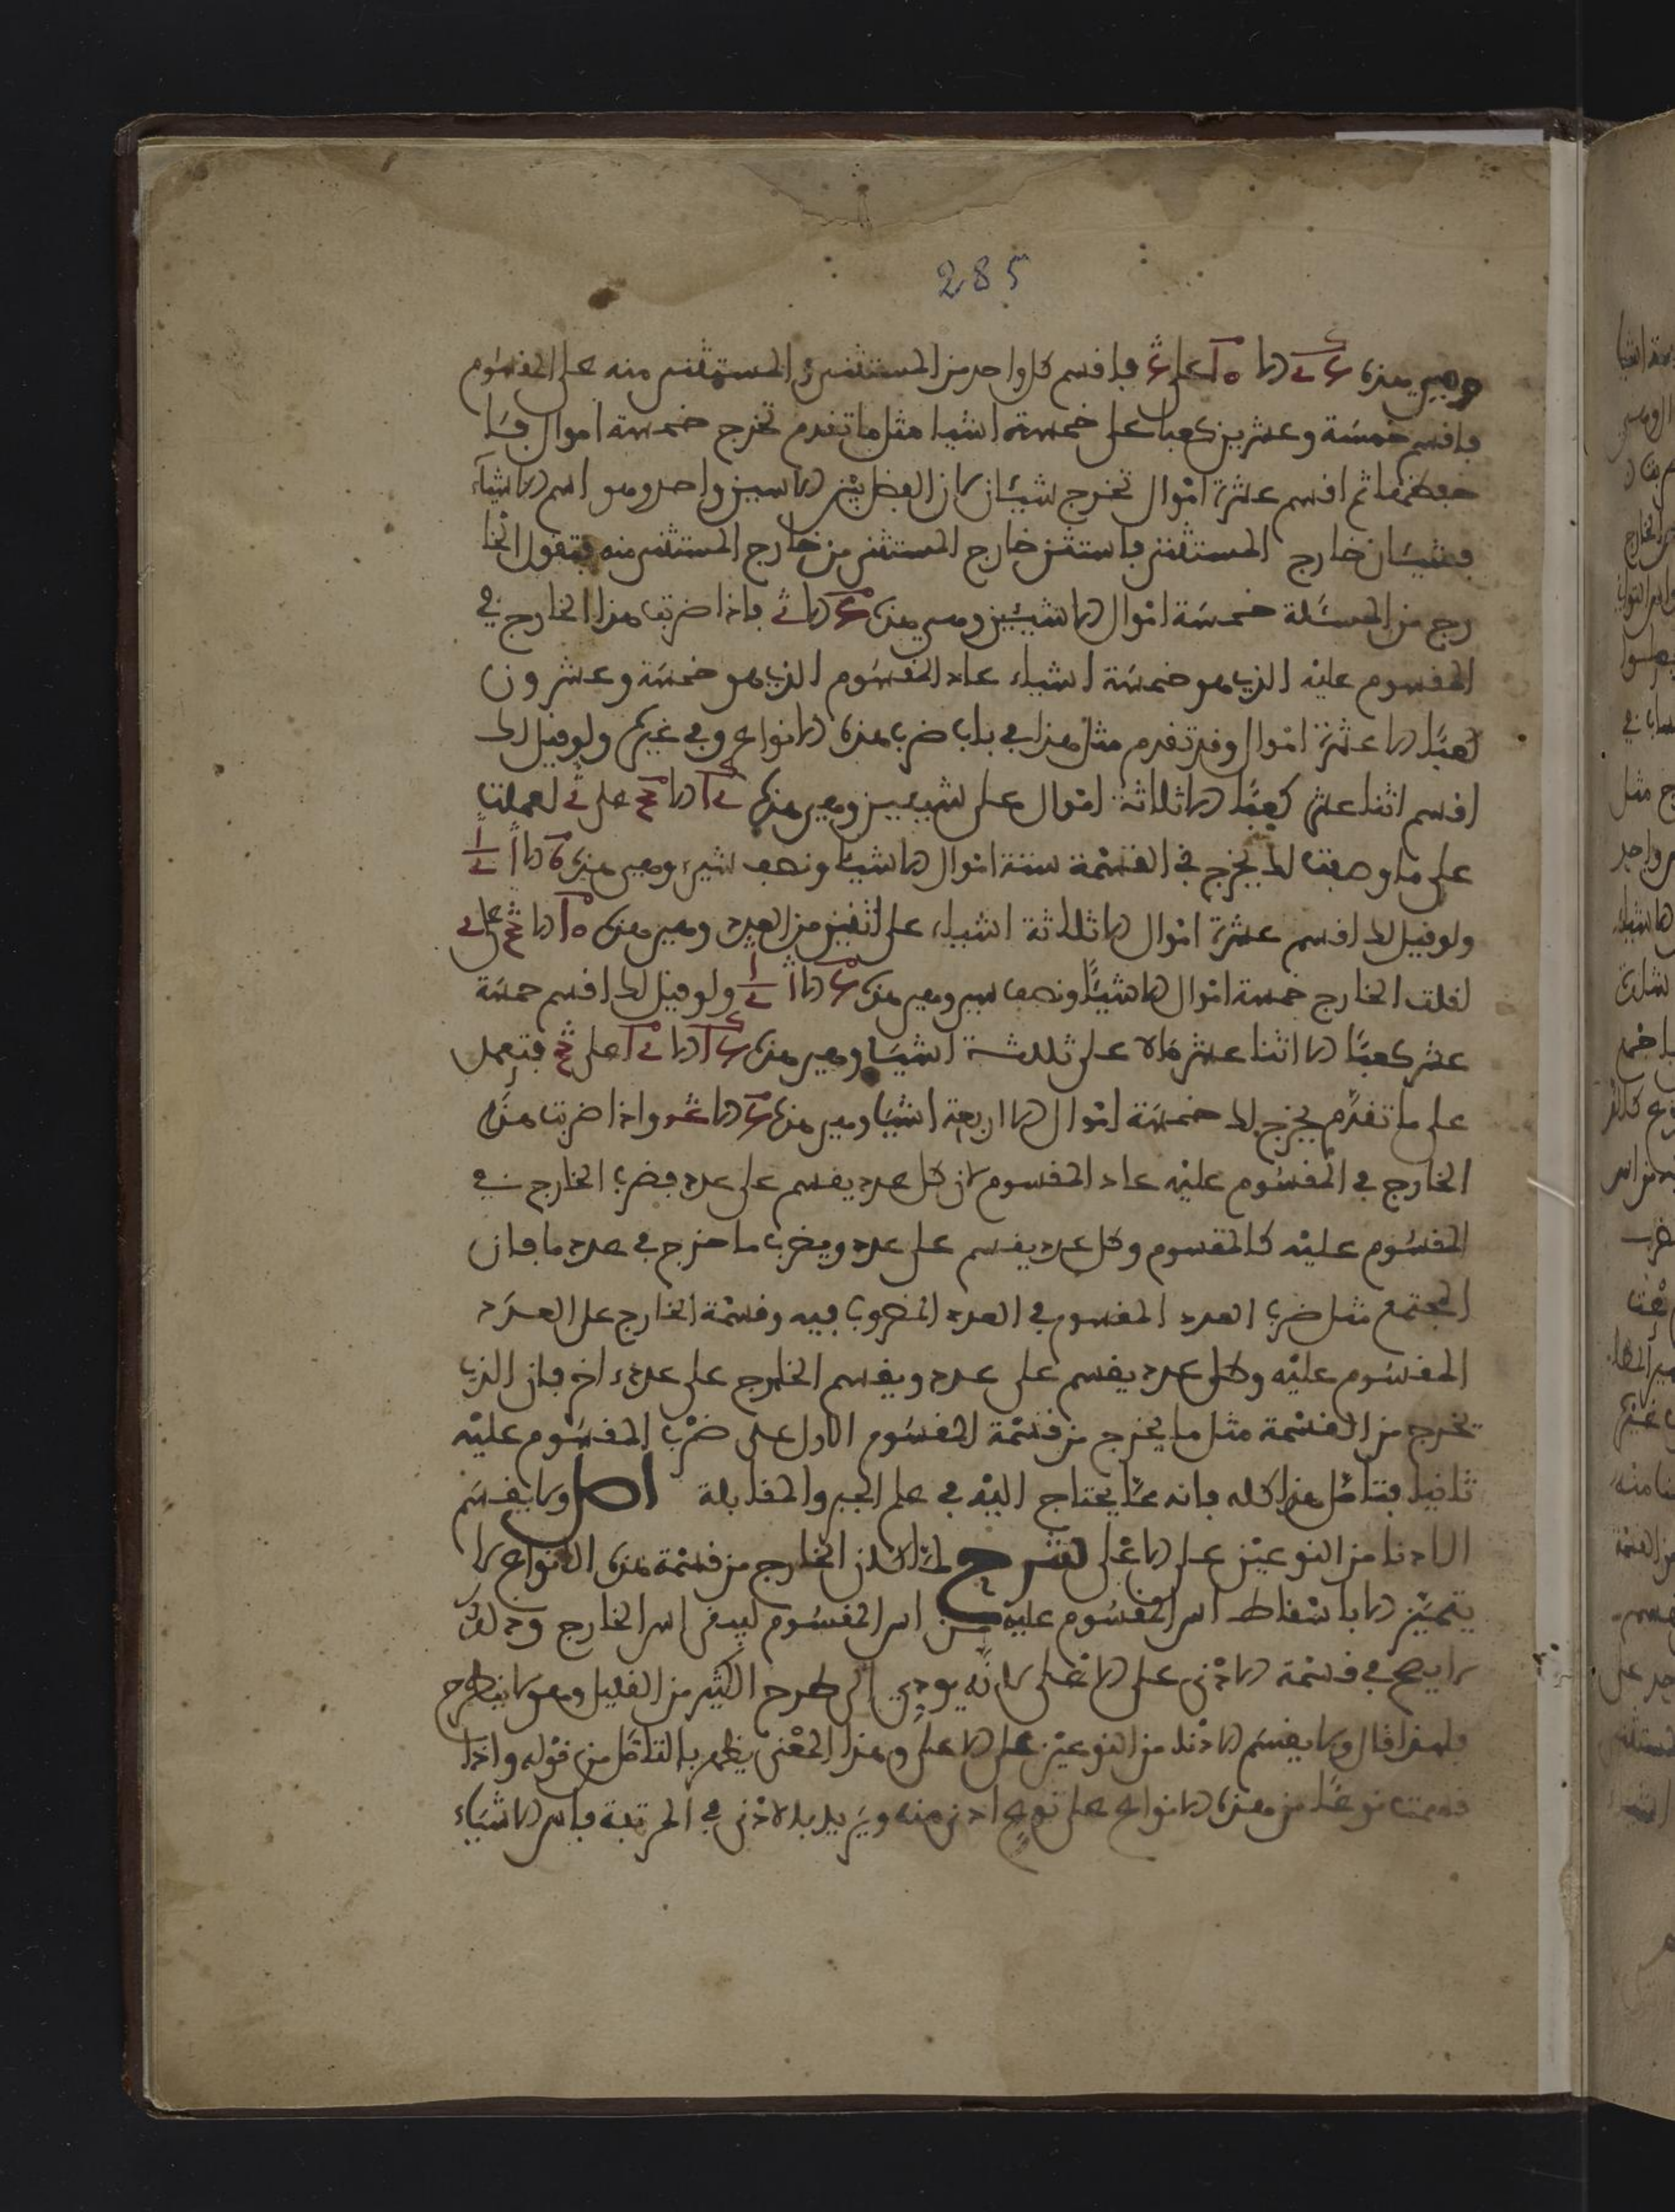 285
وهي هذه على فاقسم كل واحد من المستثنى والمستثنى منه على المقسوم
فاقسم خمسة وعشرين كعبا على خمسة اشيا مثل ما تقدم تخرج خمسة اموال
ثم اقسم عشرة اموال تخرج شيئان لان الفضل بين الاسين واحد وهو اس الاشياء
فشيئان خارج المستثنى فاستثن خارج المستثنى من خارج المستثنى منه فتقول الخا
رج من المسئلة خمسة اموال الا شيئين وهي هذه فاذا ضربت هذا الخارج في
المقسوم عليه الذي هو خمسة اشياء عاد المقسوم الذي هو خمسة وعشرون
كعبا الا عشرة اموال وقد تقدم مثل هذا في باب ضرب هذه الانواع وفي غيره ولو قيل لك
اقسم اثنا عشر كعبا الا ثلاثة اموال على شيئين وهي هذه على لعملت
على ما وصفت لك يخرج في القسمة ستة اموال الا شيئا ونصف شيء وهي هذه
ولو قيل لك اقسم عشرة اموال الا ثلاثة اشياء على اثنين من العدد وهي هذه على
لقلت الخارج خمسة اموال الا شيئا ونصف وهي هذه ولو قيل لك اقسم خمسة
عشر كعبا الا اثنا عشر مالا على ثلثة اشيا وهي هذه على فتعمل
على ما تقدم يخرج لك خمسة اموال الا اربعة اشيا وهي هذه واذا ضربت هذا
الخارج في المقسوم عليه عاد المقسوم لان كل عدد يقسم على عدد فضرب الخارج في
المقسوم عليه كالمقسوم وكل عدد يقسم على عدد ويضرب ما خرج في عدد ما فان
المجتمع مثل ضرب العدد المقسوم في العدد المضروب فيه وقسمة الخارج على العدد
المقسوم عليه وكل عدد يقسم على عدد ويقسم الخارج على عدد اخر فان الذي
يخرج من القسمة مثل ما يخرج من قسمة المقسوم الاول على ضرب المقسوم عليه
فتامل هذا كله فانه مما يحتاج اليه في علم الجبر والمقابلة اصل ولا يقسم
الادنا من النوعين على الاعلى لشرح لما كان الخارج من قسمة هذه الانواع لا
يتميز الا باسقاط اس المقسوم عليه من اس المقسوم ليبقى اس الخارج وذلك
لا يصح في قسمة الادنى على الاعلى لانه يودي الى طرح الكثير من القليل وهو لا ينطرح
فلهذا قال ولا يقسم الادنا من النوعين على الاعلى وهذا المعنى يظهر بالتامل من قوله واذا
قسمت نوعا من هذه الانواع على نوع ادنى منه ويريد بالادنى في المرتبة فاس الاشياء